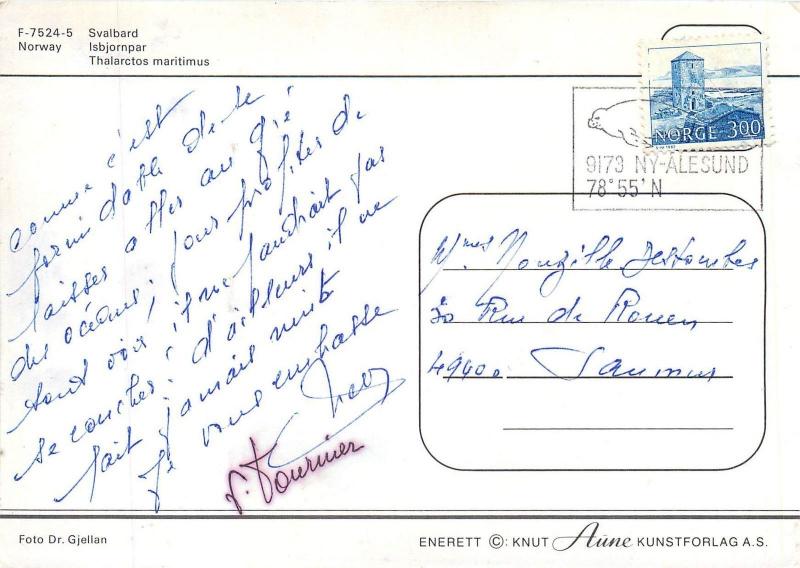 F-7524-5 Svalbard
Norway Isbjornpar
Thalarctos maritimus
NORGE 300
9173 NY-ÅLESUND
78°55'N
comme c'est
formidable de se
laisser aller au gré
des océans; pour profiter de
tout voir il ne faudrait pas
se coucher; d'ailleurs il ne
fait jamais nuit
Je vous embrasse
P. Tournier
Mmes Destombes
30 Rue de Rouen
49400 Saumur
Foto Dr. Gjellan
ENERETT ©: KNUT Aune KUNSTFORLAG A.S.